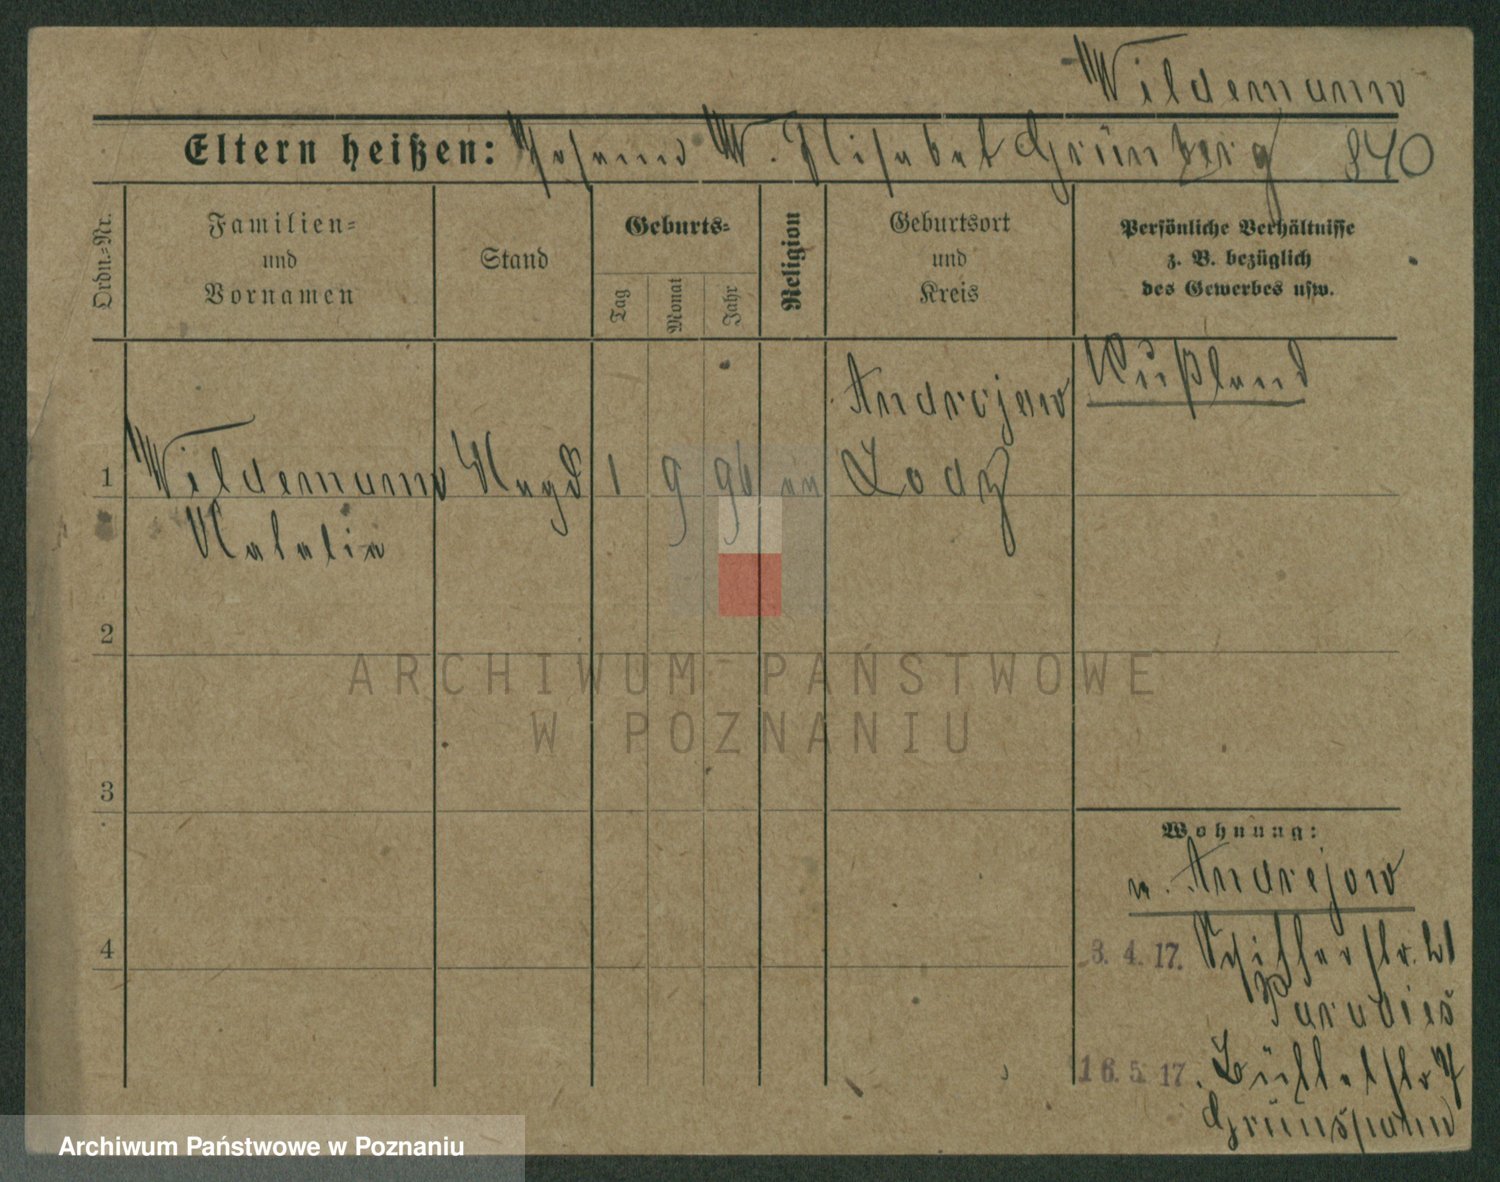 Wildemann
Eltern heißen: Johann W. Elisabet Grünberg 840
Ordn.-Nr.
Familien-
und
Vornamen
Stand
Geburts-
Tag
Monat
Jahr
Religion
Geburtsort
und
Kreis
Persönliche Verhältnisse
z. B. bezüglich
des Gewerbes usw.
Andrejow
Rußland
1 Wildemann Magd 1 9 96 ev Lodz
Natalie
2
3
4
Wohnung:
v. Andrejow
3.4.17. Schifferstr. 21
Paradies
16.5.17.
Grünspann
ARCHIWUM PAŃSTWOWE
W POZNANIU
Archiwum Państwowe w Poznaniu